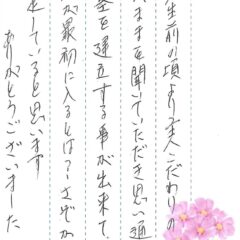 生前の頃より美人こだわりの
まゝを聞いていただき思い通
を建立する事が出来て、
が最初に入るとは？さぞか
定していると思います
ありがとうございました